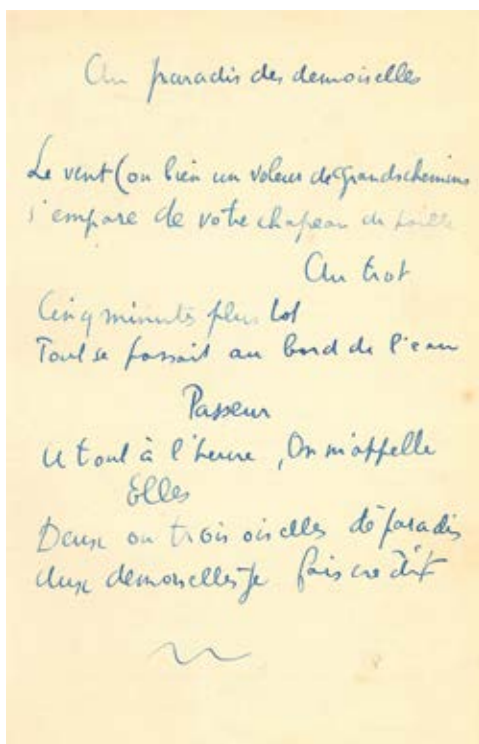 Au paradis des demoiselles
Le vent (ou bien un voleur de Grands chemins
s'empare de votre chapeau de paille
Au trot
Cinq minutes plus tot
Tout se passait au bord de l'eau
Passeur
A tout à l'heure, On m'appelle
Elles
Deux ou trois oiselles de paradis
Aux demoiselles je fais credit